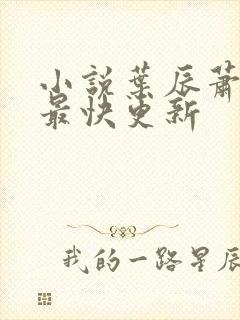 小说葉辰蕭
最快更新
我的一路星辰